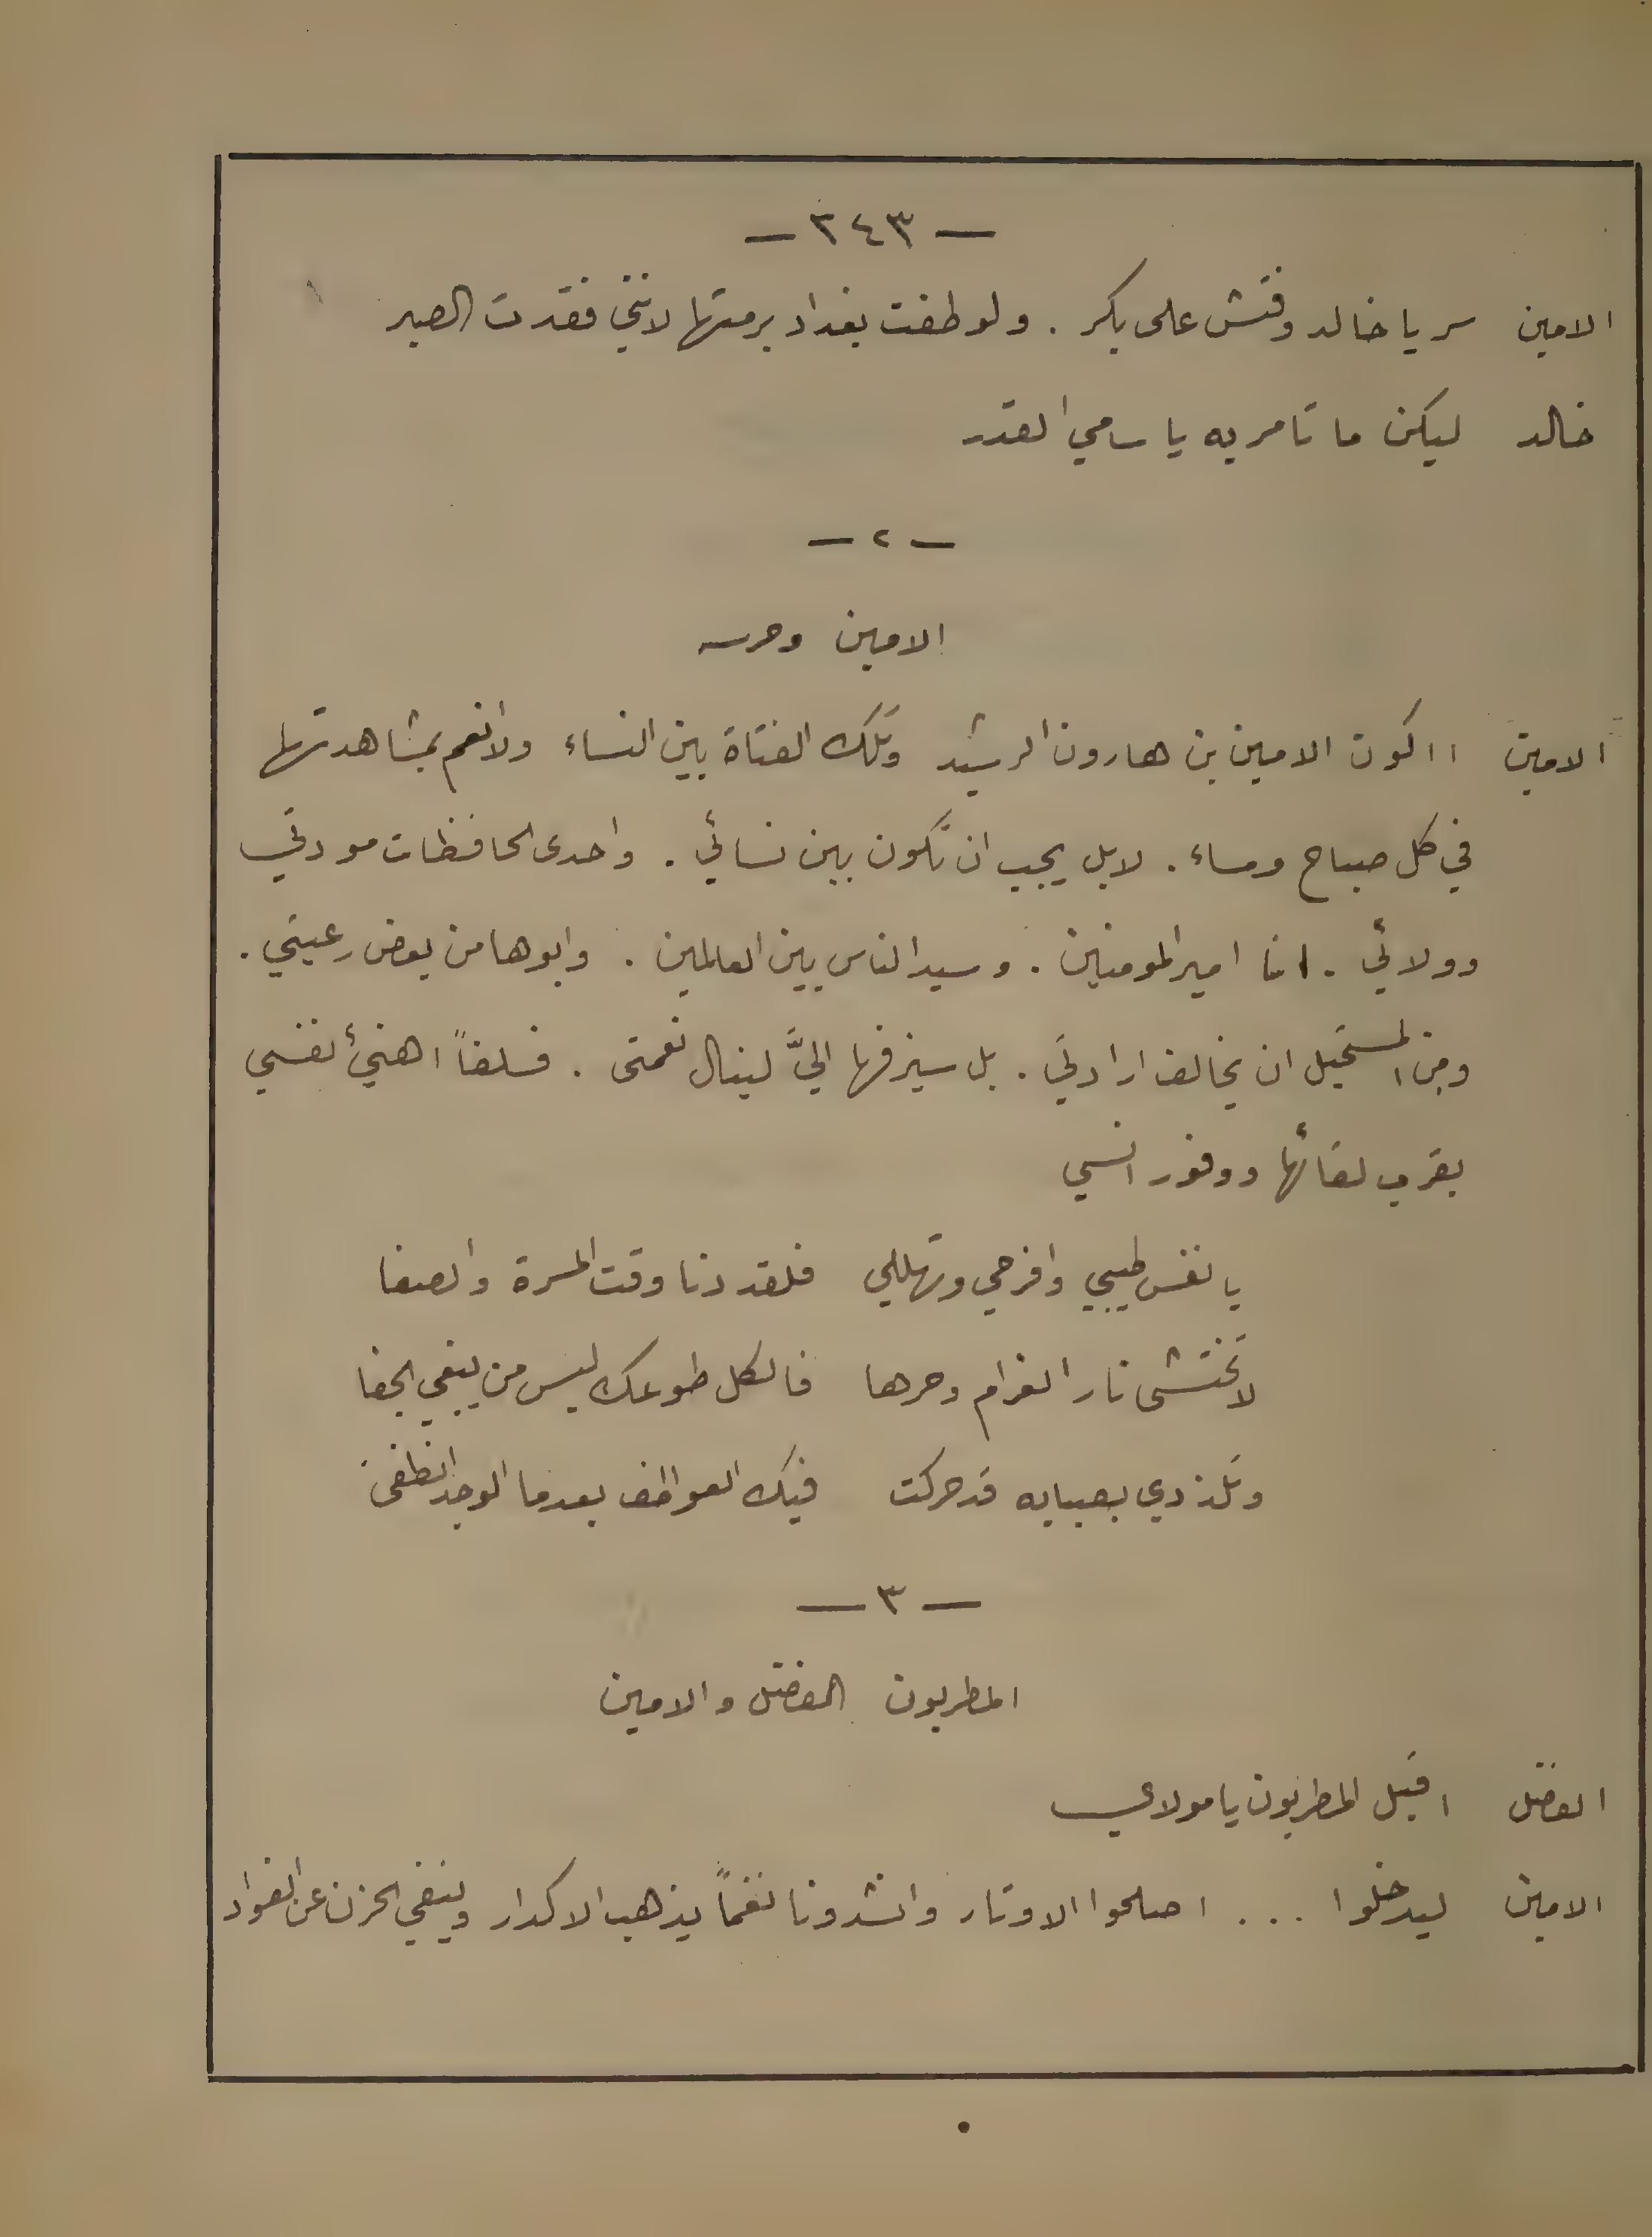 — ٢٤٣ —
الامين سر يا خالد وفتش على بكر . ولو طفت بغداد برمتها لانني فقدت الصبر
خالد ليكن ما تامر به يا سامي القدر
— ٢ —
الامين وحرسه
الامين ااكون الامين بن هارون الرشيد وتلك الفتاة بين النساء ولا انعم بمشاهدتها
في كل صباح ومساء . لا بل يجب ان تكون بين نسائي . واحدى الحافظات مودتي
وولائي . انا امير المومنين . وسيد الناس بين العالمين . وابوها من بعض رعيتي .
ومن المستحيل ان يخالف ارادتي . بل سيزفها اليَّ لينال نعمتى . فسلفاً اهنئ نفسي
بقرب لقائها ووفور انسي
يا نفس طيبي وافرحي وتهللي فلقد دنا وقت المسرة والصفا
لا تختشى نار الغرام وحرها فالكل طوعك ليس من يبغي الجفا
وتلذذي بصبابه قد حركت فيك العواطف بعدما الوجد انطفى
— ٣ —
المطربون الفضل والامين
الفضل اقبل المطربون يا مولاي
الامين ليدخلوا ... اصلحوا الاوتار وانشدونا نغماً يذهب الاكدار وينفي الحزن عن الفواد